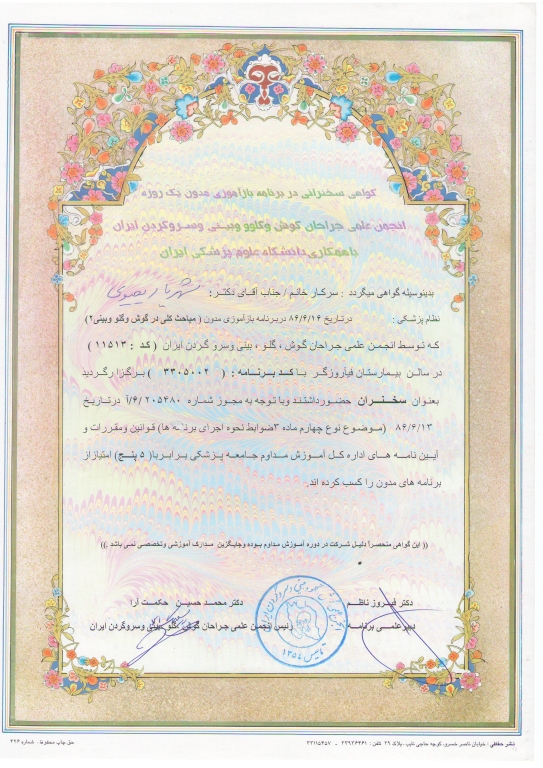 گواهی سخنرانی در برنامه بازآموزی مدون یک روزه
انجمن علمی جراحان گوش وگلوو وبینی وسروگردن ایران
باهمکاری دانشگاه علوم پزشکی ایران
بدینوسیله گواهی میگردد : سرکار خانم / جناب آقای دکتر : شهریار یحیوی
نظام پزشکی : درتاریخ ۸۶/۶/۱۶ دربرنامه بازآموزی مدون ( مباحث کلی در گوش وگلو وبینی۲)
که توسط انجمن علمی جراحان گوش ، گلو ، بینی وسرو گردن ایران ( کد : ۱۱۵۱۳ )
در سالن بیمارستان فیاروزگر با کد برنامه : ( ۳۳۰۵۰۰۲ ) برگزار گردید
بعنوان سخنران حضورداشتند وبا توجه به مجوز شماره ۲۰۵۴۸۰ /۶/آ درتاریخ
۸۶/۶/۱۳ (موضوع نوع چهارم ماده ۳ضوابط نحوه اجرای برنامه ها) قوانین ومقررات و
آیین نامه های اداره کل آموزش مداوم جامعه پزشکی برابربا( ۵ پنج) امتیازاز
برنامه های مدون را کسب کرده اند.
(( این گواهی منحصراً دلیل شرکت در دوره آموزش مداوم بوده وجایگزین مدارک آموزشی وتخصصی نمی باشد .))
دکتر فیروز ناظم دکتر محمد حسین حکمت آرا
دبیرعلمی برنامه رئیس انجمن علمی جراحان گوش ،گلو ،بینی وسروگردن ایران
تاسیس ۱۳۵۴
نشر حقفی : خیابان ناصر خسرو، کوچه حاجی نایب ، پلاک ۲۹ تلفن : ۳۳۹۲۴۴۴۱ - ۳۳۱۱۵۴۵۷ حق چاپ محفوظ - شماره ۴۹۴